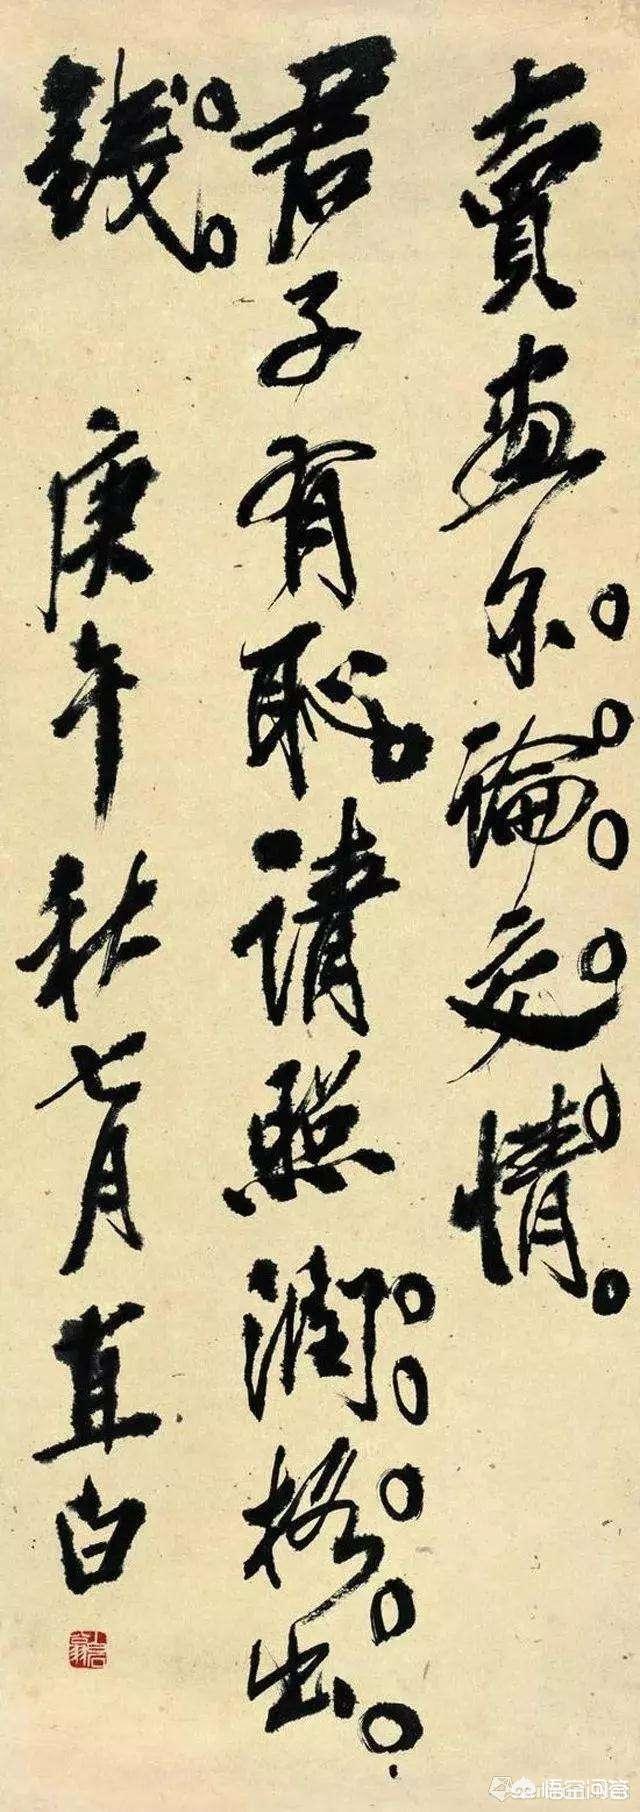 賣畫不論交情
君子有恥請照潤格出
錢庚午秋七月直白
悟空问答